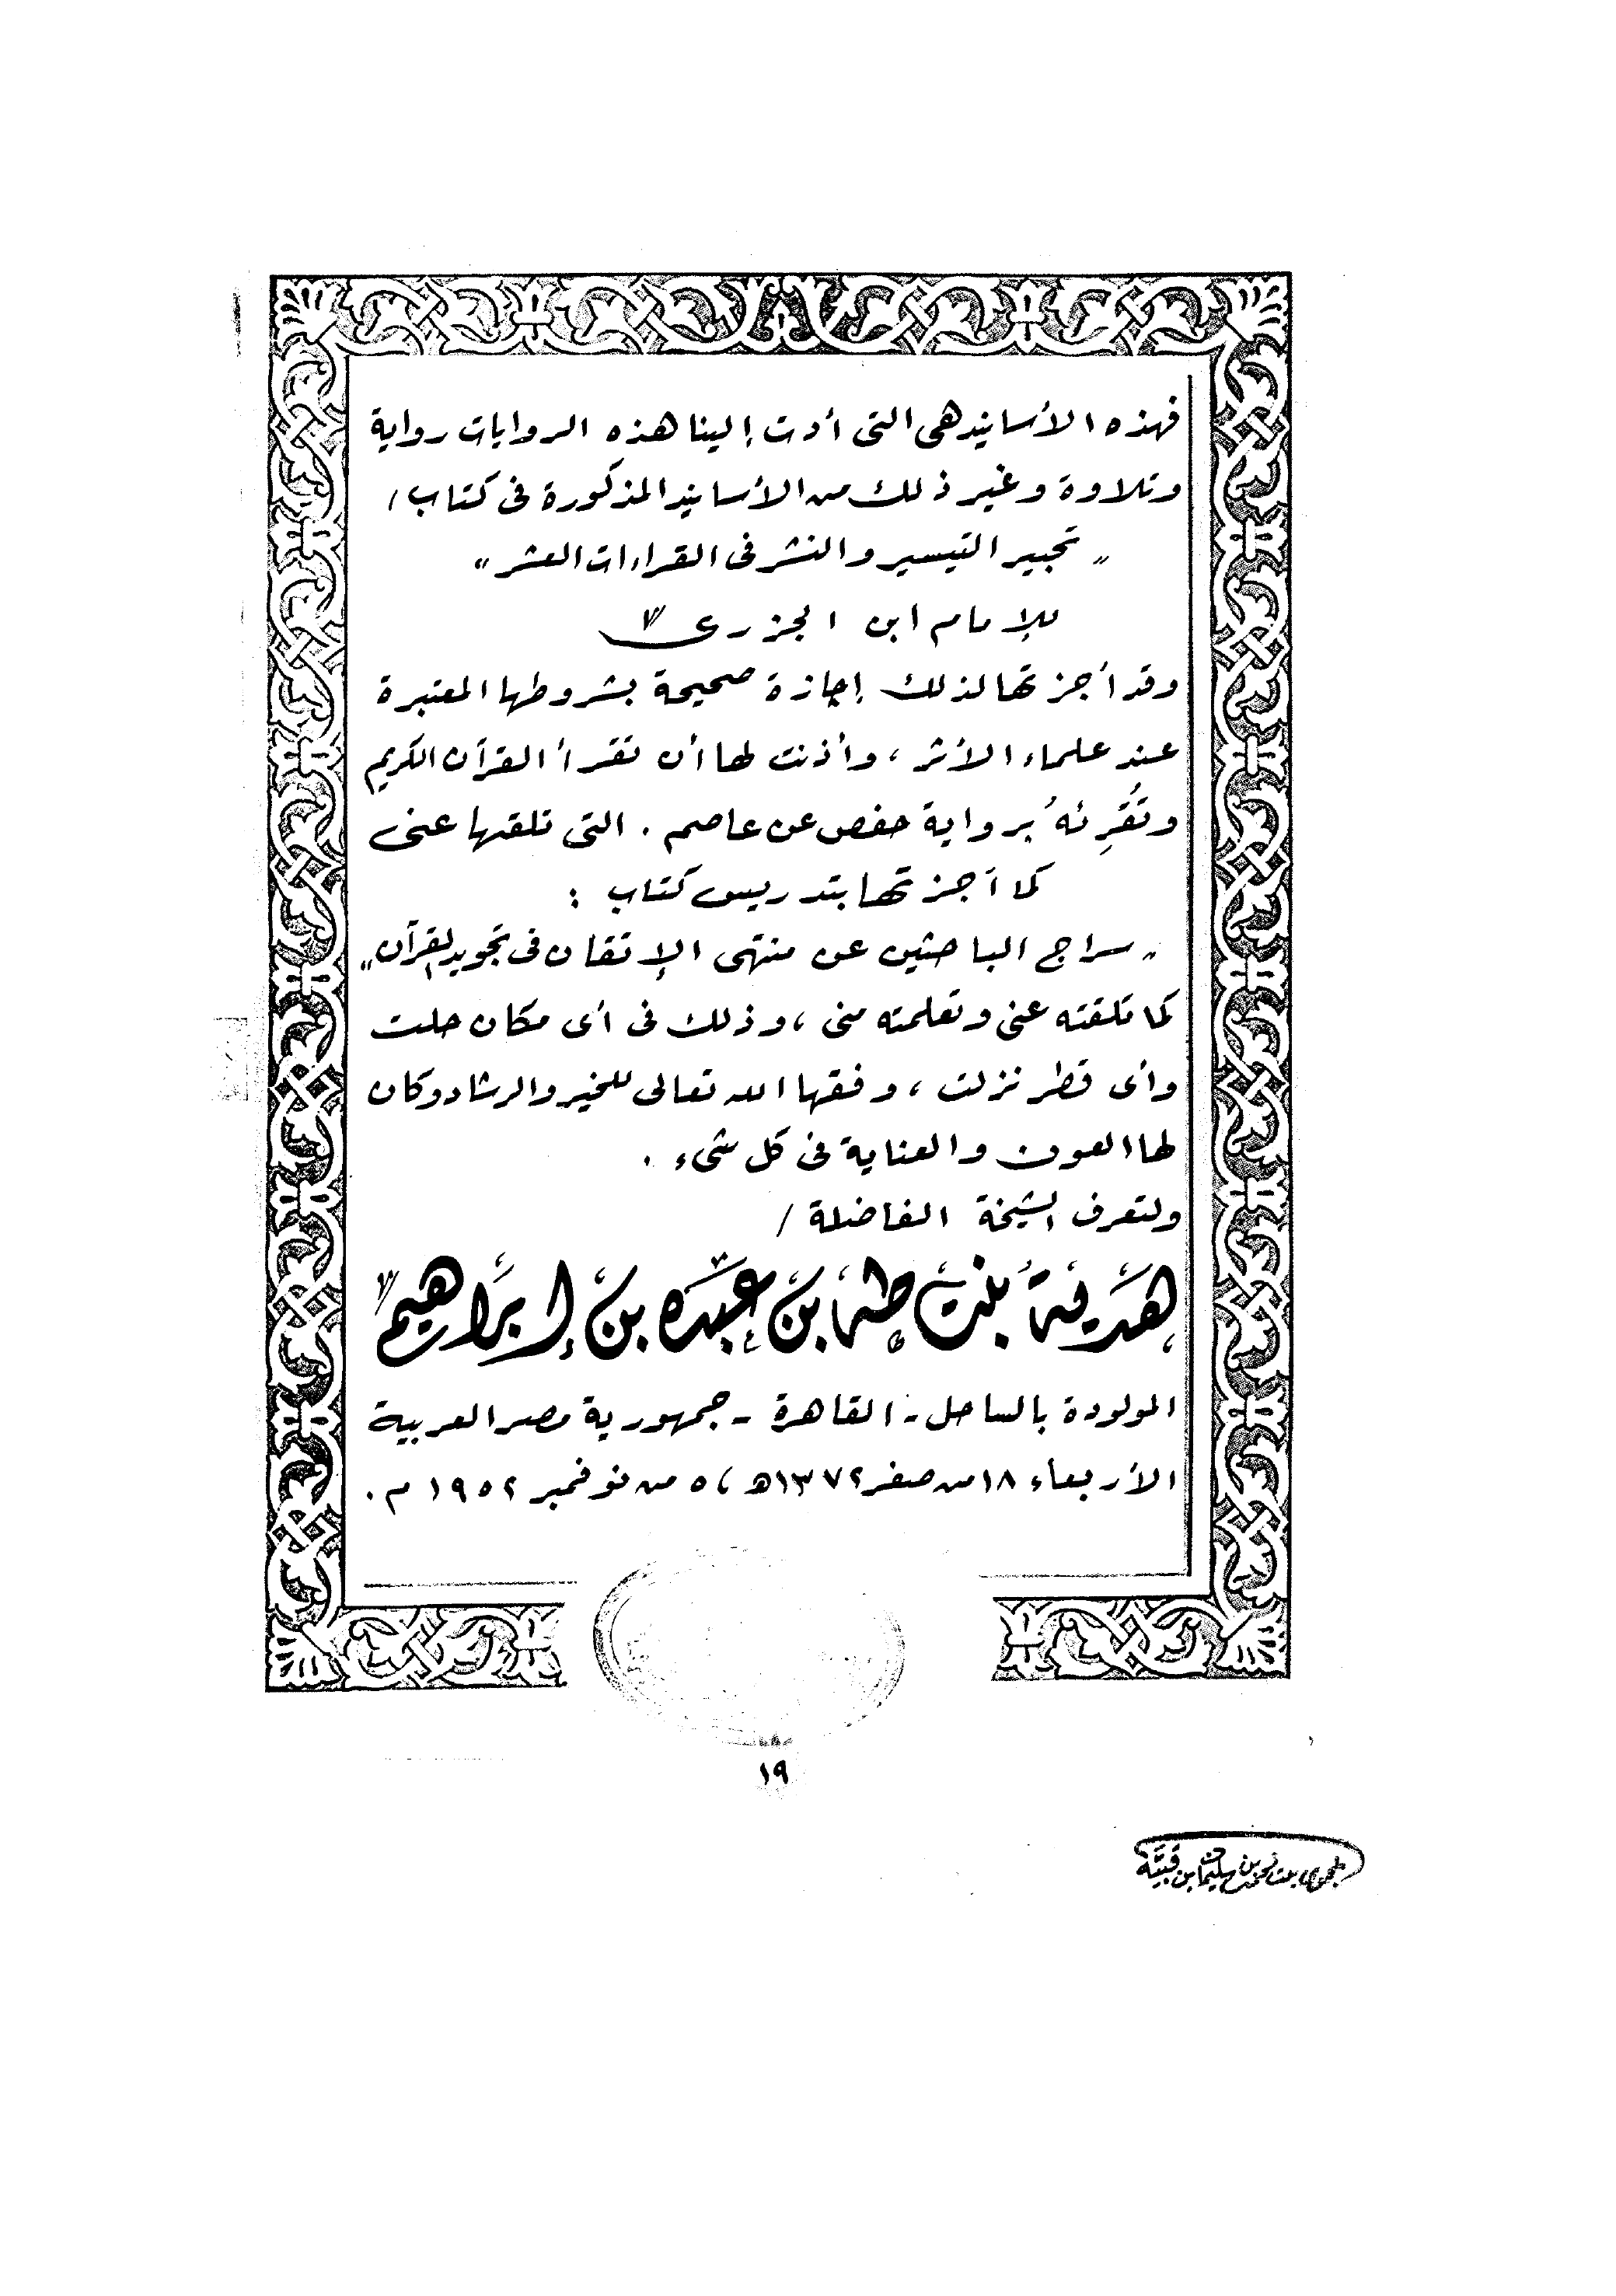 فهذه الأسانيد هى التى أدت إلينا هذه الروايات رواية
وتلاوة وغير ذلك من الأسانيد المذكورة فى كتاب /
" تحبير التيسير والنشر فى القراءات العشر "
للإمام ابن الجزرى
وقد أجزتها لذلك إجازة صحيحة بشروطها المعتبرة
عند علماء الأثر ، وأذنت لها أن تقرأ القرآن الكريم
وتُقرِئهُ برواية حفص عن عاصم . التى تلقتها عنى
كما أجزتها بتدريس كتاب :
" سراج الباحثين عن منتهى الإتقان فى تجويد القرآن "
كما تلقته عنى وتعلمته منى ، وذلك فى أى مكان حلت
وأى قطر نزلت ، وفقها الله تعالى للخير والرشاد وكان
لها العون والعناية فى كل شىء .
ولتعرف الشيخة الفاضلة /
بنت طه بن عبده بن إبراهيم
المولودة بالساحل - القاهرة - جمهورية مصر العربية
الأربعاء ١٨ من صفر ١٣٧٢هـ ، ٥ من نوفمبر ١٩٥٢ م .
١٩